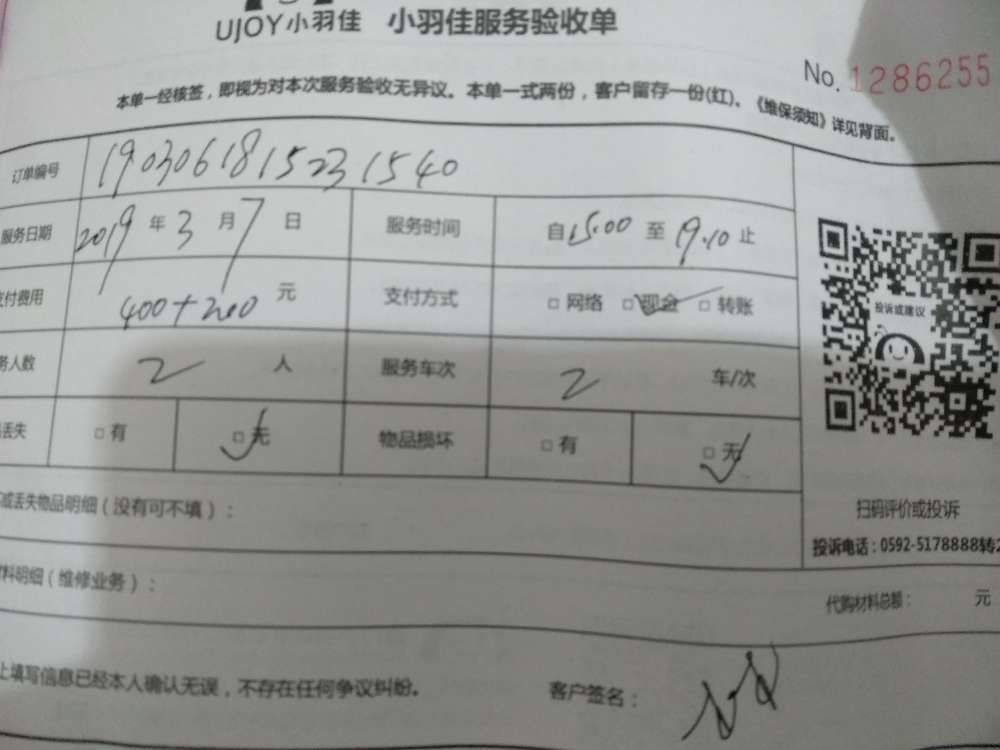 UJOY小羽佳 小羽佳服务验收单
No. 1286255
本单一经核签，即视为对本次服务验收无异议。本单一式两份，客户留存一份(红)。《维保须知》详见背面。
订单编号 190306181523 1540
服务日期 2019 年 3 月 7 日 服务时间 自 15:00 至 19.10 止
支付费用 400+200 元 支付方式 □ 网络 □ 现金 □ 转账
务人数 2 人 服务车次 2 车/次
丢失 □ 有 □ 无 物品损坏 □ 有 □ 无
投诉或建议
或丢失物品明细（没有可不填）：
扫码评价或投诉
投诉电话：0592-5178888转2
料明细（维修业务）：
代购材料总额： 元
上填写信息已经本人确认无误，不存在任何争议纠纷。 客户签名：